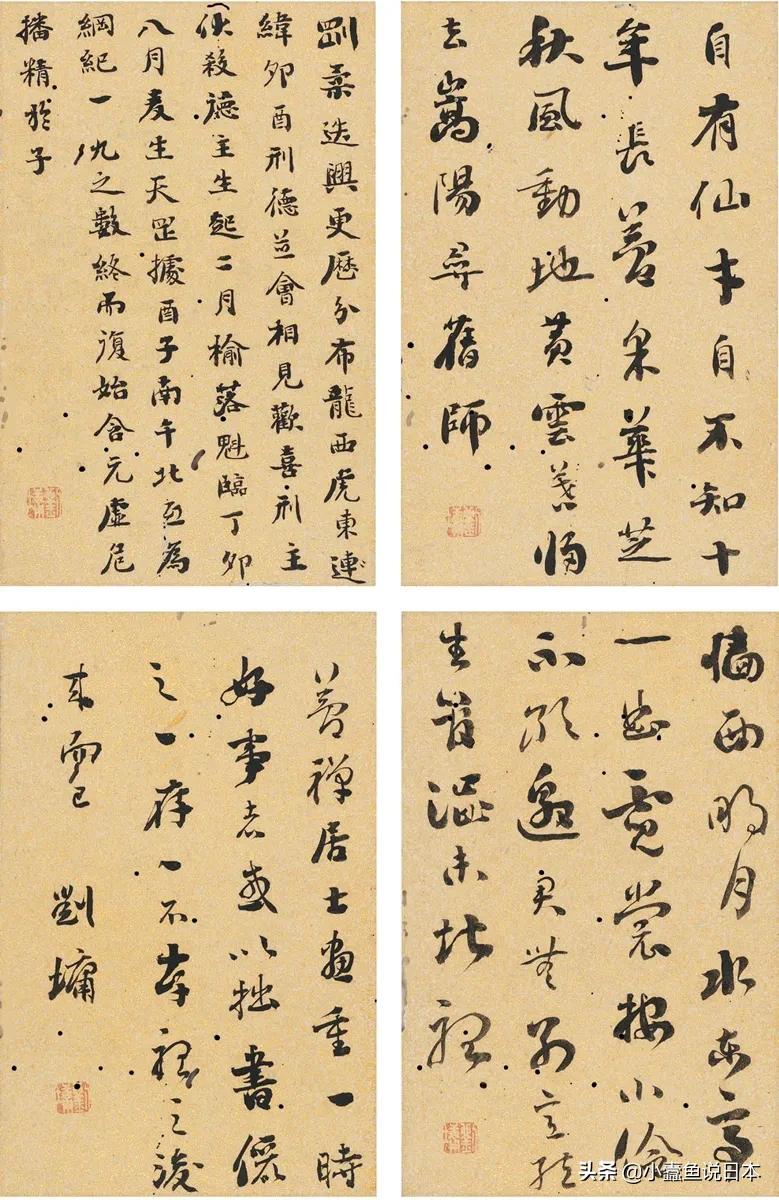 自有仙才自不知十
年長夢采華芝
秋風動地黃雲暮歸
去嵩陽尋舊師
剛柔迭興更歷分布龍西虎東建
緯卯酉刑德並會相見歡喜刑主
伏殺德主生起二月榆落魁臨于卯
八月麥生天罡據酉子南午北互為
綱紀一九之數終而復始含元虛危
播精於子
牆西明月水東亭
一曲霓裳按小伶
不敢邀君無別意絃
生管澀未堪聽
夢禪居士畫重一時
好事者或以拙書儷
之一存一不存聽之後
來而已
劉墉
头条 @小蠹鱼说日本